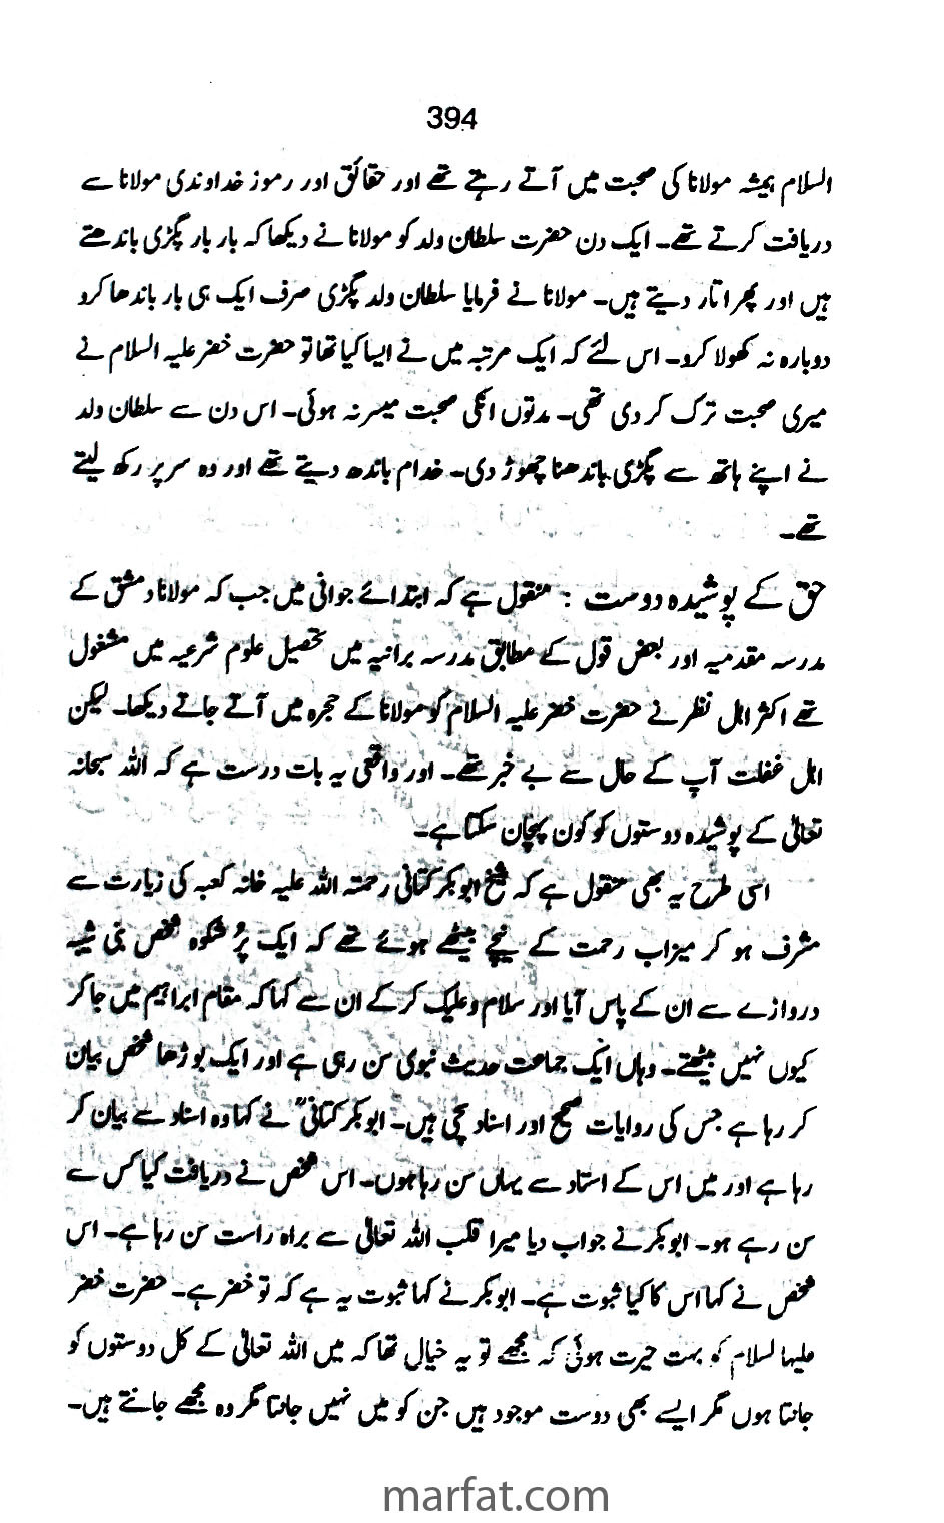 394
السلام ہمیشہ مولانا کی صحبت میں آتے رہتے تھے اور حقائق اور رموز خداوندی مولانا سے
دریافت کرتے تھے۔ ایک دن حضرت سلطان ولد کو مولانا نے دیکھا کہ بار بار پگڑی باندھتے
ہیں اور پھر اتار دیتے ہیں۔ مولانا نے فرمایا سلطان ولد پگڑی صرف ایک ہی بار باندھا کرو
دوبارہ نہ کھولا کرو۔ اس لئے کہ ایک مرتبہ میں نے ایسا کیا تھا تو حضرت خضر علیہ السلام نے
میری صحبت ترک کر دی تھی۔ مدتوں انکی صحبت میسر نہ ہوئی۔ اس دن سے سلطان ولد
نے اپنے ہاتھ سے پگڑی باندھنا چھوڑ دی۔ خدام باندھ دیتے تھے اور وہ سر پر رکھ لیتے
تھے۔
حق کے پوشیدہ دوست : منقول ہے کہ ابتدائے جوانی میں جب کہ مولانا دمشق کے
مدرسہ مقدمیہ اور بعض قول کے مطابق مدرسہ برانیہ میں تحصیل علوم شرعیہ میں مشغول
تھے اکثر اہل نظر نے حضرت خضر علیہ السلام کو مولانا کے حجرہ میں آتے جاتے دیکھا۔ لیکن
اہل غفلت آپ کے حال سے بے خبر تھے۔ اور واقعی یہ بات درست ہے کہ اللہ سبحانہ
تعالیٰ کے پوشیدہ دوستوں کو کون پہچان سکتا ہے۔
اسی طرح یہ بھی منقول ہے کہ شیخ ابوبکر کتانی رحمتہ اللہ علیہ خانہ کعبہ کی زیارت سے
مشرف ہو کر میزاب رحمت کے نیچے بیٹھے ہوئے تھے کہ ایک پُر شکوہ شخص بنی شیبہ
دروازے سے ان کے پاس آیا اور سلام وعلیک کرکے ان سے کہا کہ مقام ابراہیم میں جا کر
کیوں نہیں بیٹھتے۔ وہاں ایک جماعت حدیث نبوی سن رہی ہے اور ایک بوڑھا شخص بیان
کر رہا ہے جس کی روایات صحیح اور اسناد سچی ہیں۔ ابوبکر کتانیؒ نے کہا وہ اسناد سے بیان کر
رہا ہے اور میں اس کے استاد سے یہاں سن رہا ہوں۔ اس شخص نے دریافت کیا کس سے
سن رہے ہو۔ ابوبکر نے جواب دیا میرا قلب اللہ تعالیٰ سے براہ راست سن رہا ہے۔ اس
شخص نے کہا اس کا کیا ثبوت ہے۔ ابوبکر نے کہا ثبوت یہ ہے کہ تو خضر ہے۔ حضرت خضر
علیہا لسلام کو بہت حیرت ہوئی کہ مجھے تو یہ خیال تھا کہ میں اللہ تعالیٰ کے کل دوستوں کو
جانتا ہوں مگر ایسے بھی دوست موجود ہیں جن کو میں نہیں جانتا مگر وہ مجھے جانتے ہیں۔
marfat.com